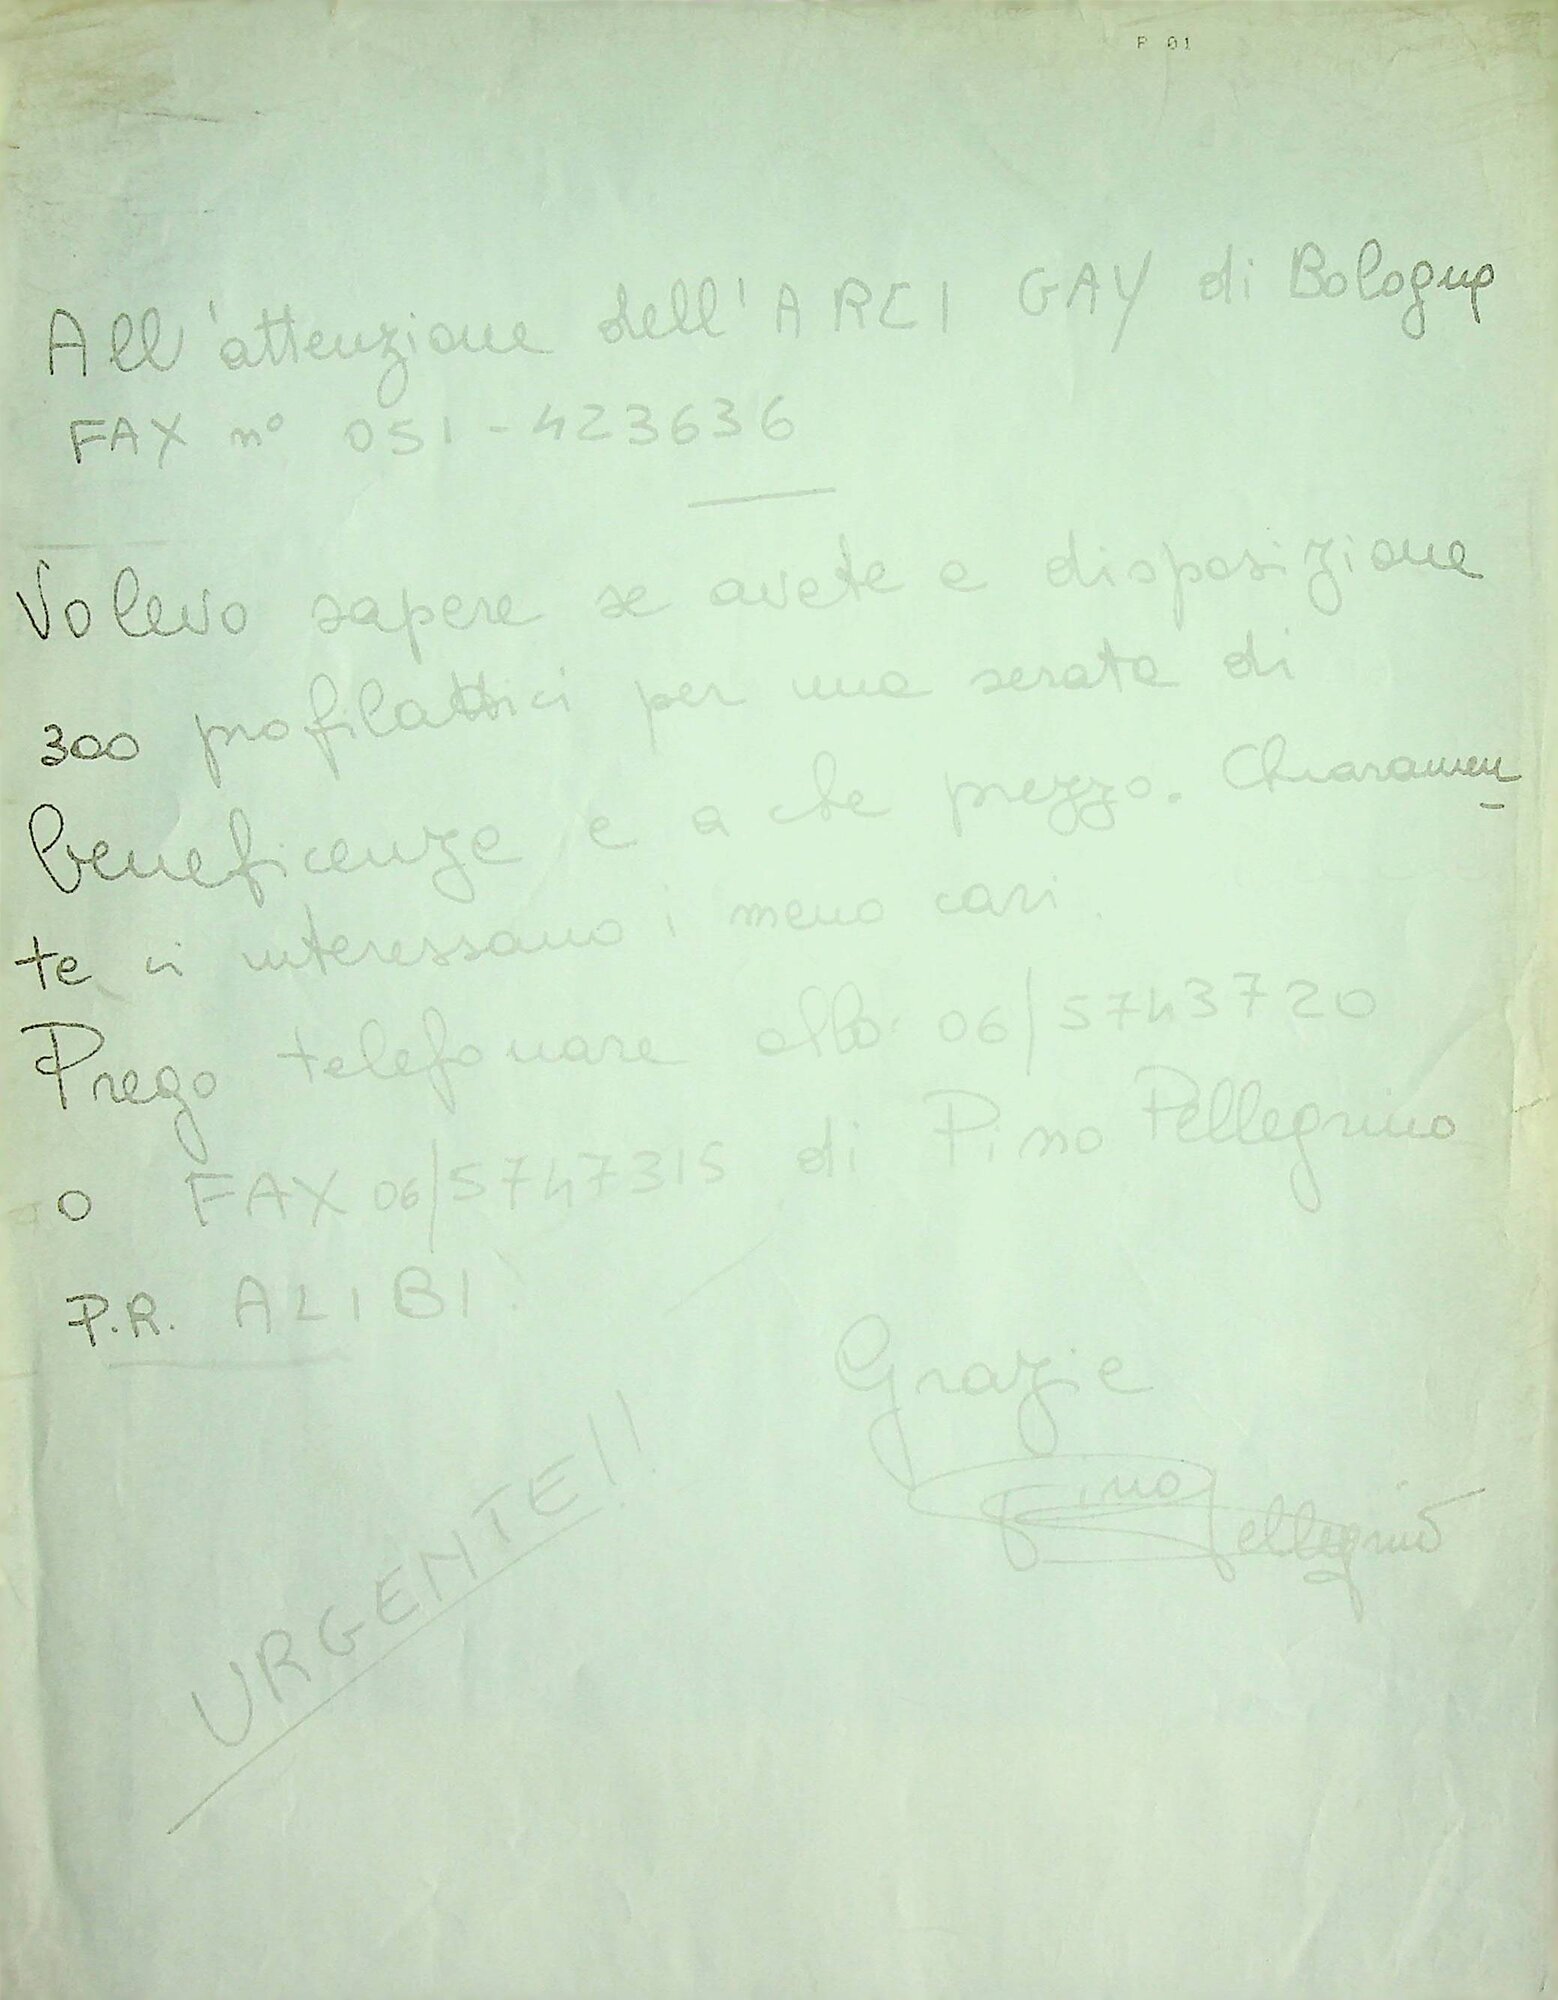 P 01
All'attenzione dell'ARCI GAY di Bologna
FAX n° 051-423636
Volevo sapere se avete a disposizione
300 profilattici per una serata di
beneficenza e a che prezzo. Chiaramen
te ci interessano i meno cari.
Prego telefonare allo: 06/5743720
o FAX 06/5747315 di Pino Pellegrino
P.R. ALIBI
Grazie
Pino Pellegrino
URGENTE!!